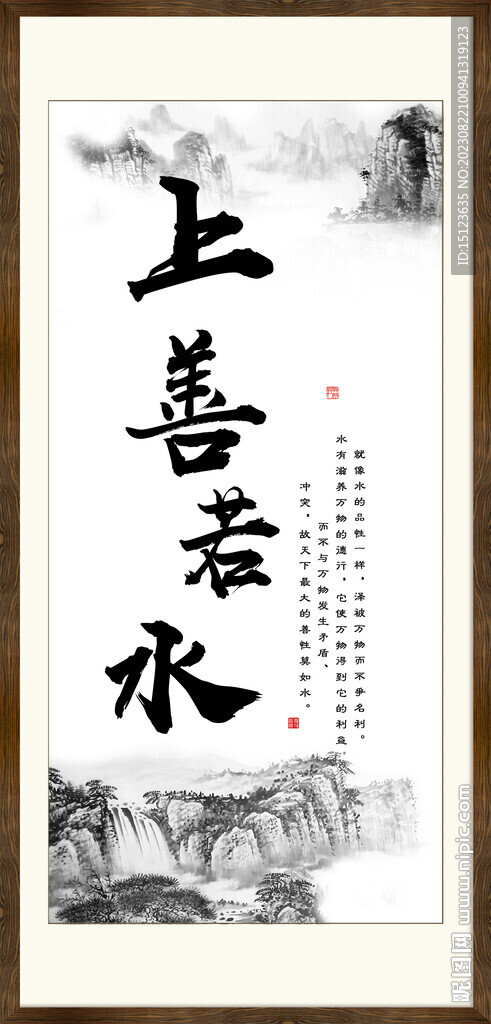 上善若水
就像水的品性一样，泽被万物而不争名利。
水有滋养万物的德行，它使万物得到它的利益，
而不与万物发生矛盾、
冲突，故天下最大的善性莫如水。
ID:15123635 NO:20230822100941319123
昵图网 www.nipic.com